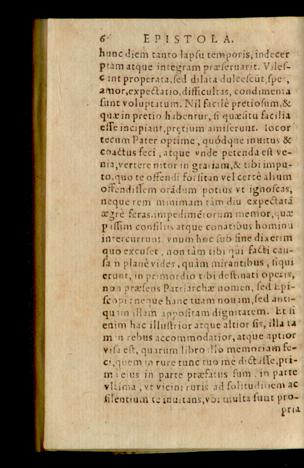 6 EPISTOLA.
hunc diem tanto lapsu temporis, indecer
ptam atque integram præseruarit. Viles-
cunt properata, sed dilata dulcescūt, spe,
amor, expectatio, difficultas, condimenta
sunt voluptatum. Nil facilè pretiosum, &
quæ in pretio habentur, si quæsitu facilia
esse incipiant, pretium amiserunt. Iocor
tecum Pater optime, quódque inuitus &
coactus feci, atque vnde petenda est ve-
nia, vertere nitor in gratiam, & tibi impu-
to, quo te offendi forsitan vel certè alium
offendissem orādum potius vt ignoscas,
neque rem minimam tàm diu expectatā
ægrè feras, impedimētorum memor, quæ
pissim consiliis atque conatibus hominū
intercurrunt. vnum hoc sine dixerim
quo excuset, non tàm tibi qui facti cau-
sam planè vides, quàm mirantibus, siqui
erunt, in primordio tibi destinati operis,
non præsens Patriarchæ nomen, sed Epi-
scopi: neque hanc tuam nouam, sed anti-
quam illam appositam dignitatem. Et si
enim hæc illustrior atque altior sis, illa ta
men rebus accommodatior, atque aptior
visa est, quarum libro illo memoriam fe-
ci, quem in rure tunc tuo me dictasse, pri-
mi eius in parte præfatus sum, in parte
vltima, vt vicini ruris ad solitudinem ac
silentium te inuitans, vbi multa sunt pro-
pria